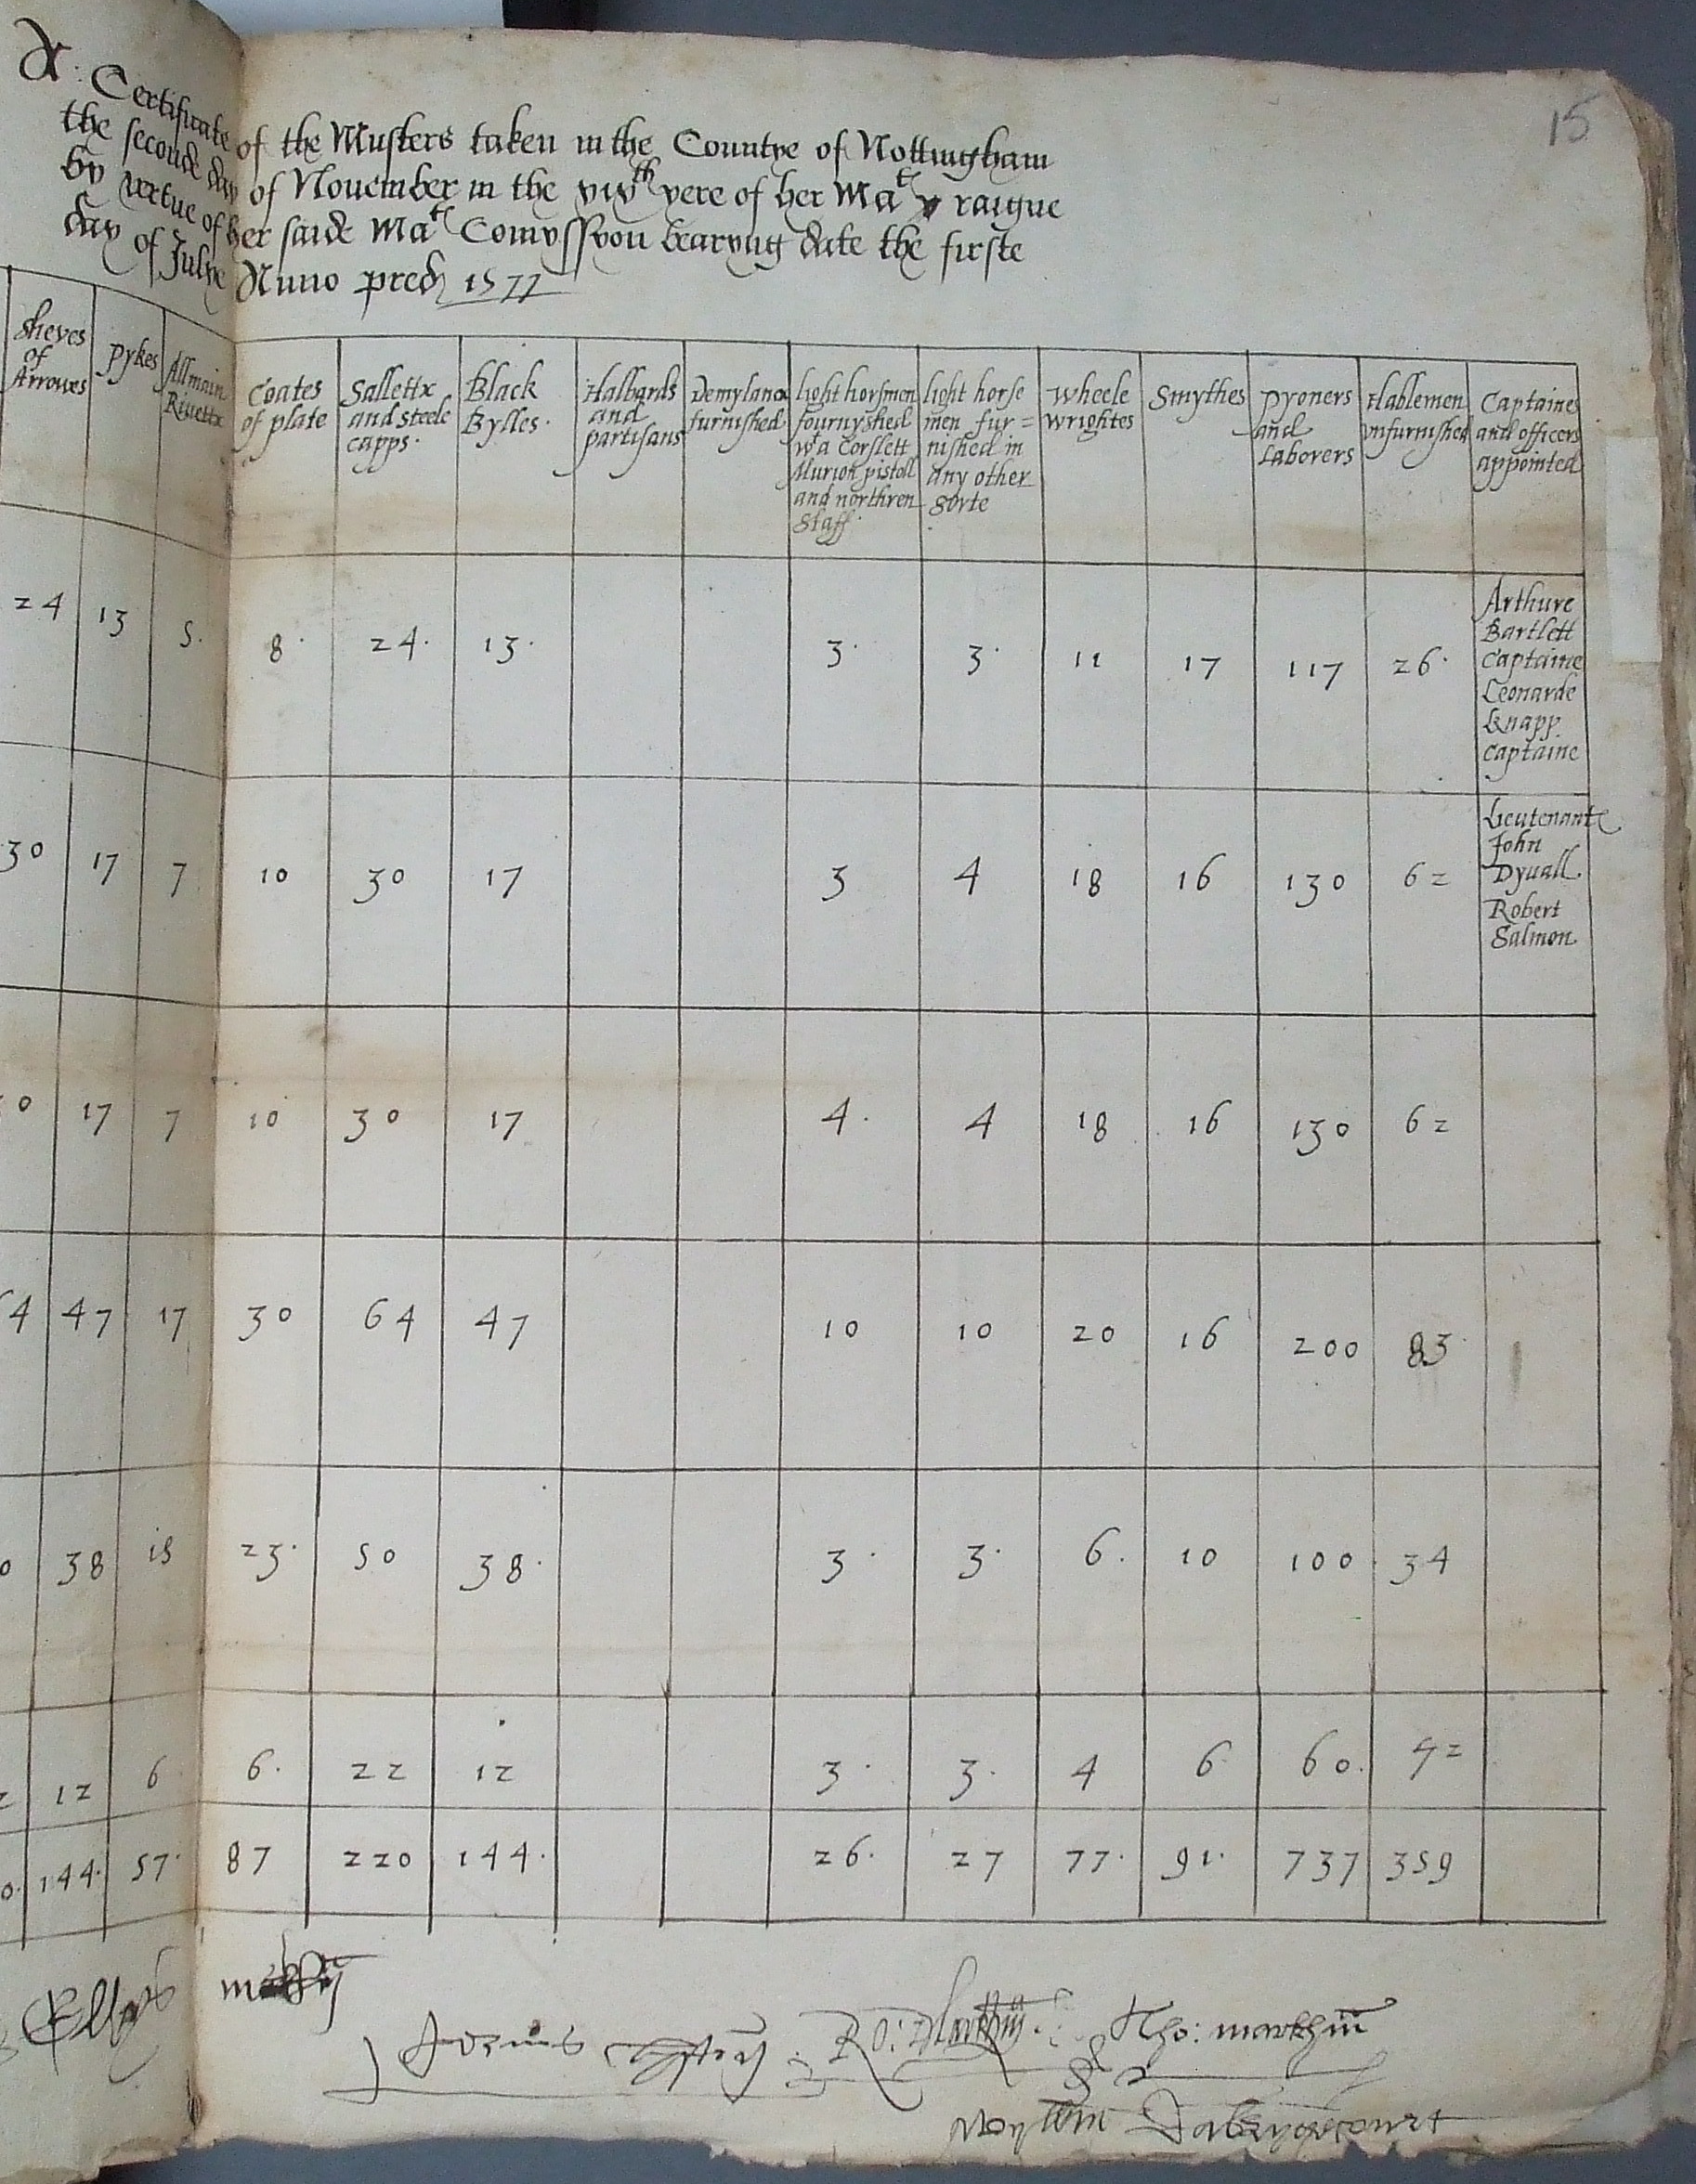 15
A Certificate of the Musters taken in the Countye of Nottingham
the seconde day of Nouember in the xixth yere of her Mates raigne
by vertue of her saide Mates Comyssyon bearyng date the firste
day of Julye Anno pred 1577
Sheves of Arrowes | Pykes | Allmain Rivettx | Coates of plate | Sallettx and steele capps. | Black Bylles. | Halbards and partisans | Demylances furnished | light horsmen fournyshed wt a Corslett Murion pistoll and northren Staff. | light horse men fur= nished in any other Sorte | Wheele wrightes | Smythes | Pyoners and Laborers | Hablemen vnfurnished | Captaines and officers appointed
24 | 13 | 5. | 8. | 24. | 13. | 3. | 3. | 11 | 17 | 117 | 26. | Arthure Bartlett Captaine Leonarde Knapp Captaine
30 | 17 | 7 | 10 | 30 | 17 | 3 | 4 | 18 | 16 | 130 | 62 | Lieutenante John Dyuall. Robert Salmon
0 | 17 | 7 | 10 | 30 | 17 | 4. | 4 | 18 | 16 | 130 | 62
64 | 47 | 17 | 30 | 64 | 47 | 10 | 10 | 20 | 16 | 200 | 83
0 | 38 | 15 | 23. | 50 | 38. | 3. | 3. | 6. | 10 | 100 | 34
2 | 12 | 6 | 6. | 22 | 12 | 3. | 3. | 4 | 6 | 60. | 92
0. | 144. | 57. | 87 | 220 | 144. | 26. | 27 | 77. | 91. | 737 | 359
Ellys
Ro: Markhm Tho: markhm
Dabrygecourt